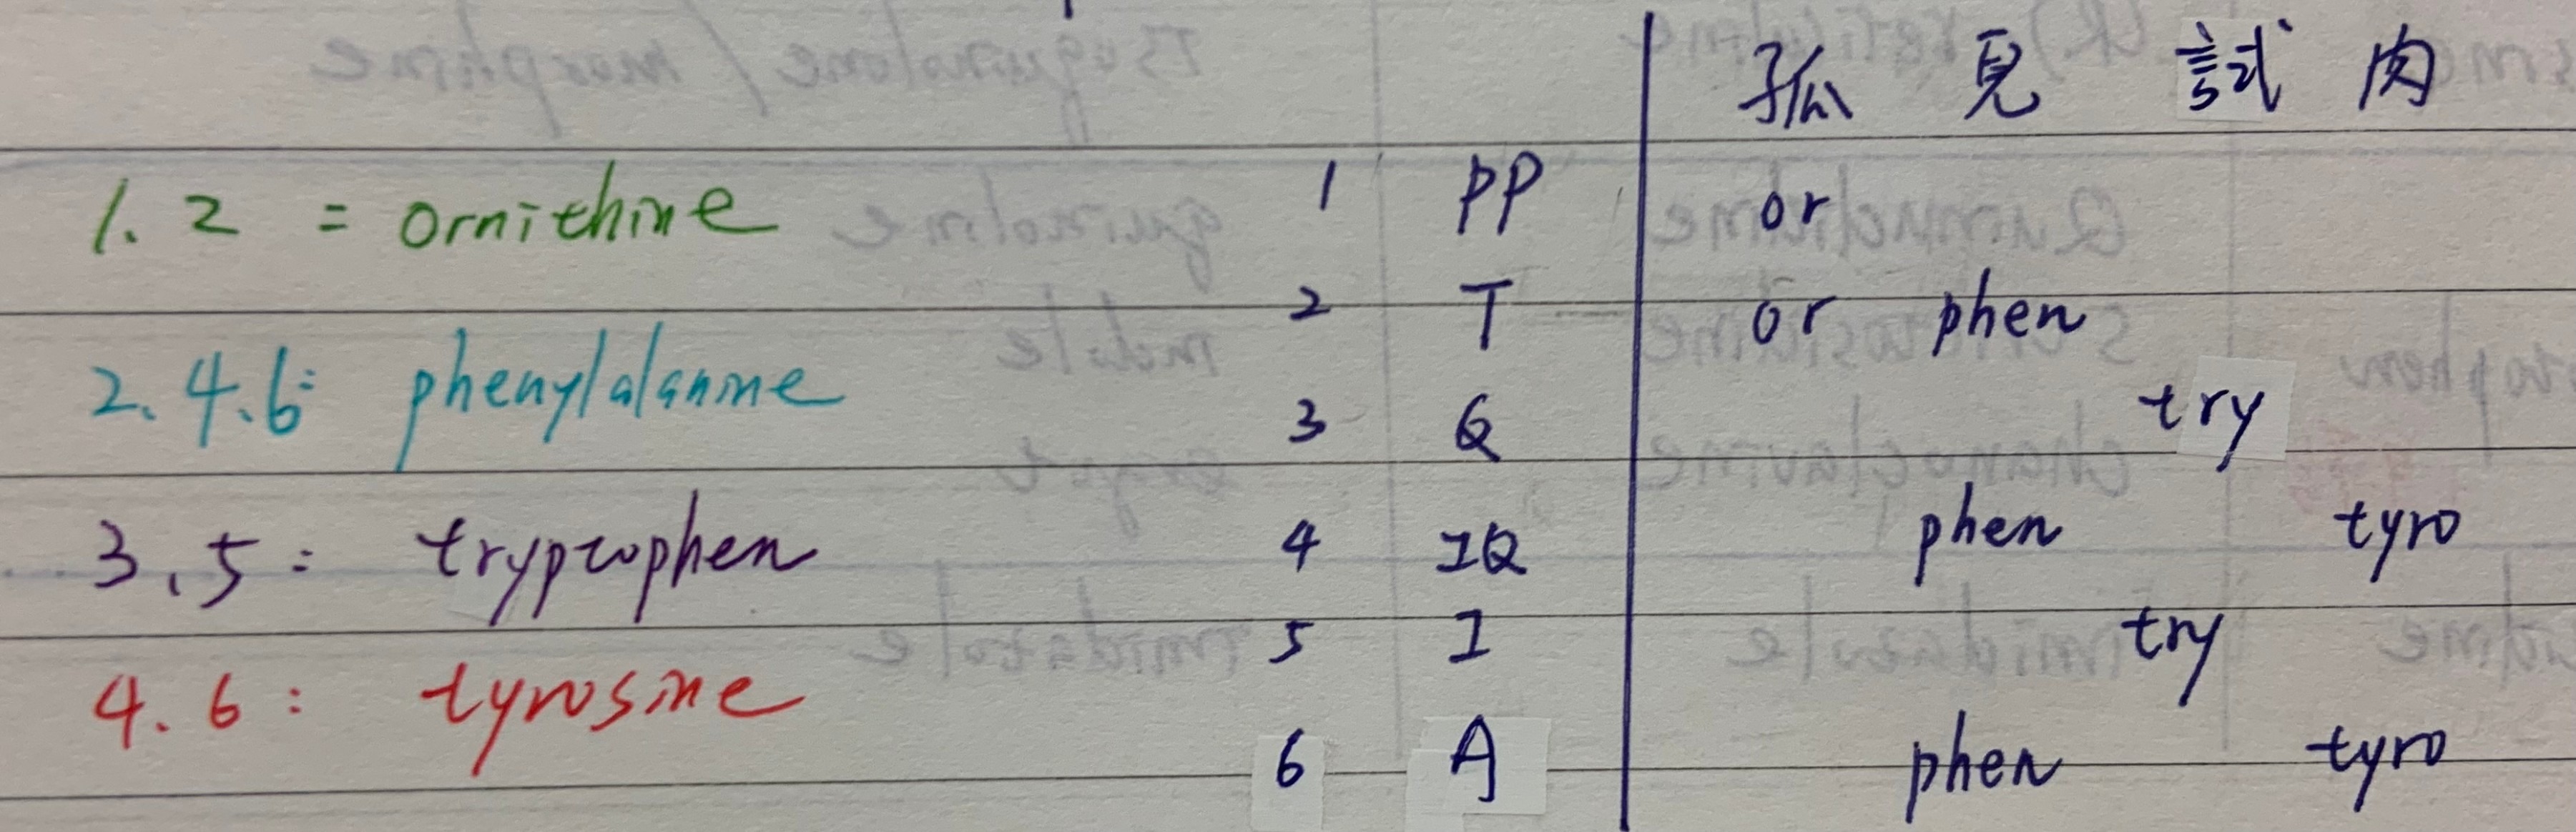 孤 見 試 肉
1. 2 = ornithine 1 PP or
2 T or phen
2. 4. 6: phenylalanine 3 Q try
3、5: tryptophen 4 IQ phen tyro
5 I try
4. 6: tyrosine 6 A phen tyro